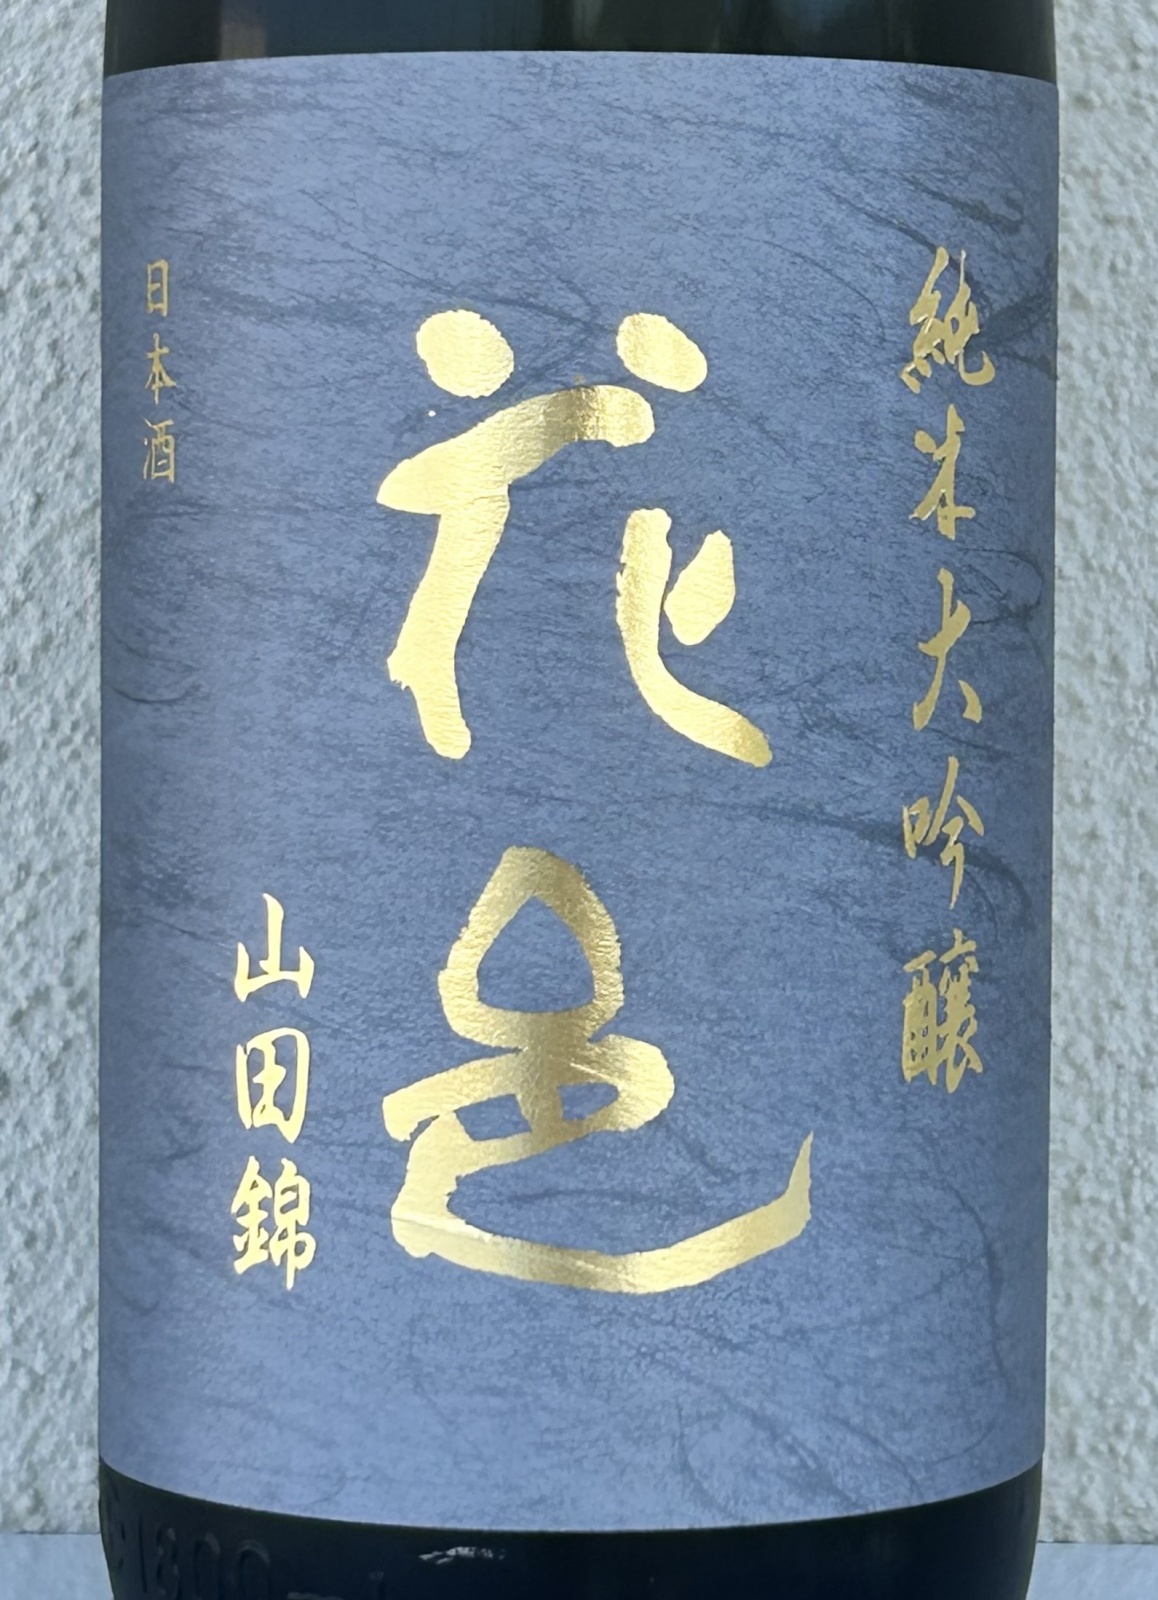 純米大吟醸
花邑
山田錦
日本酒